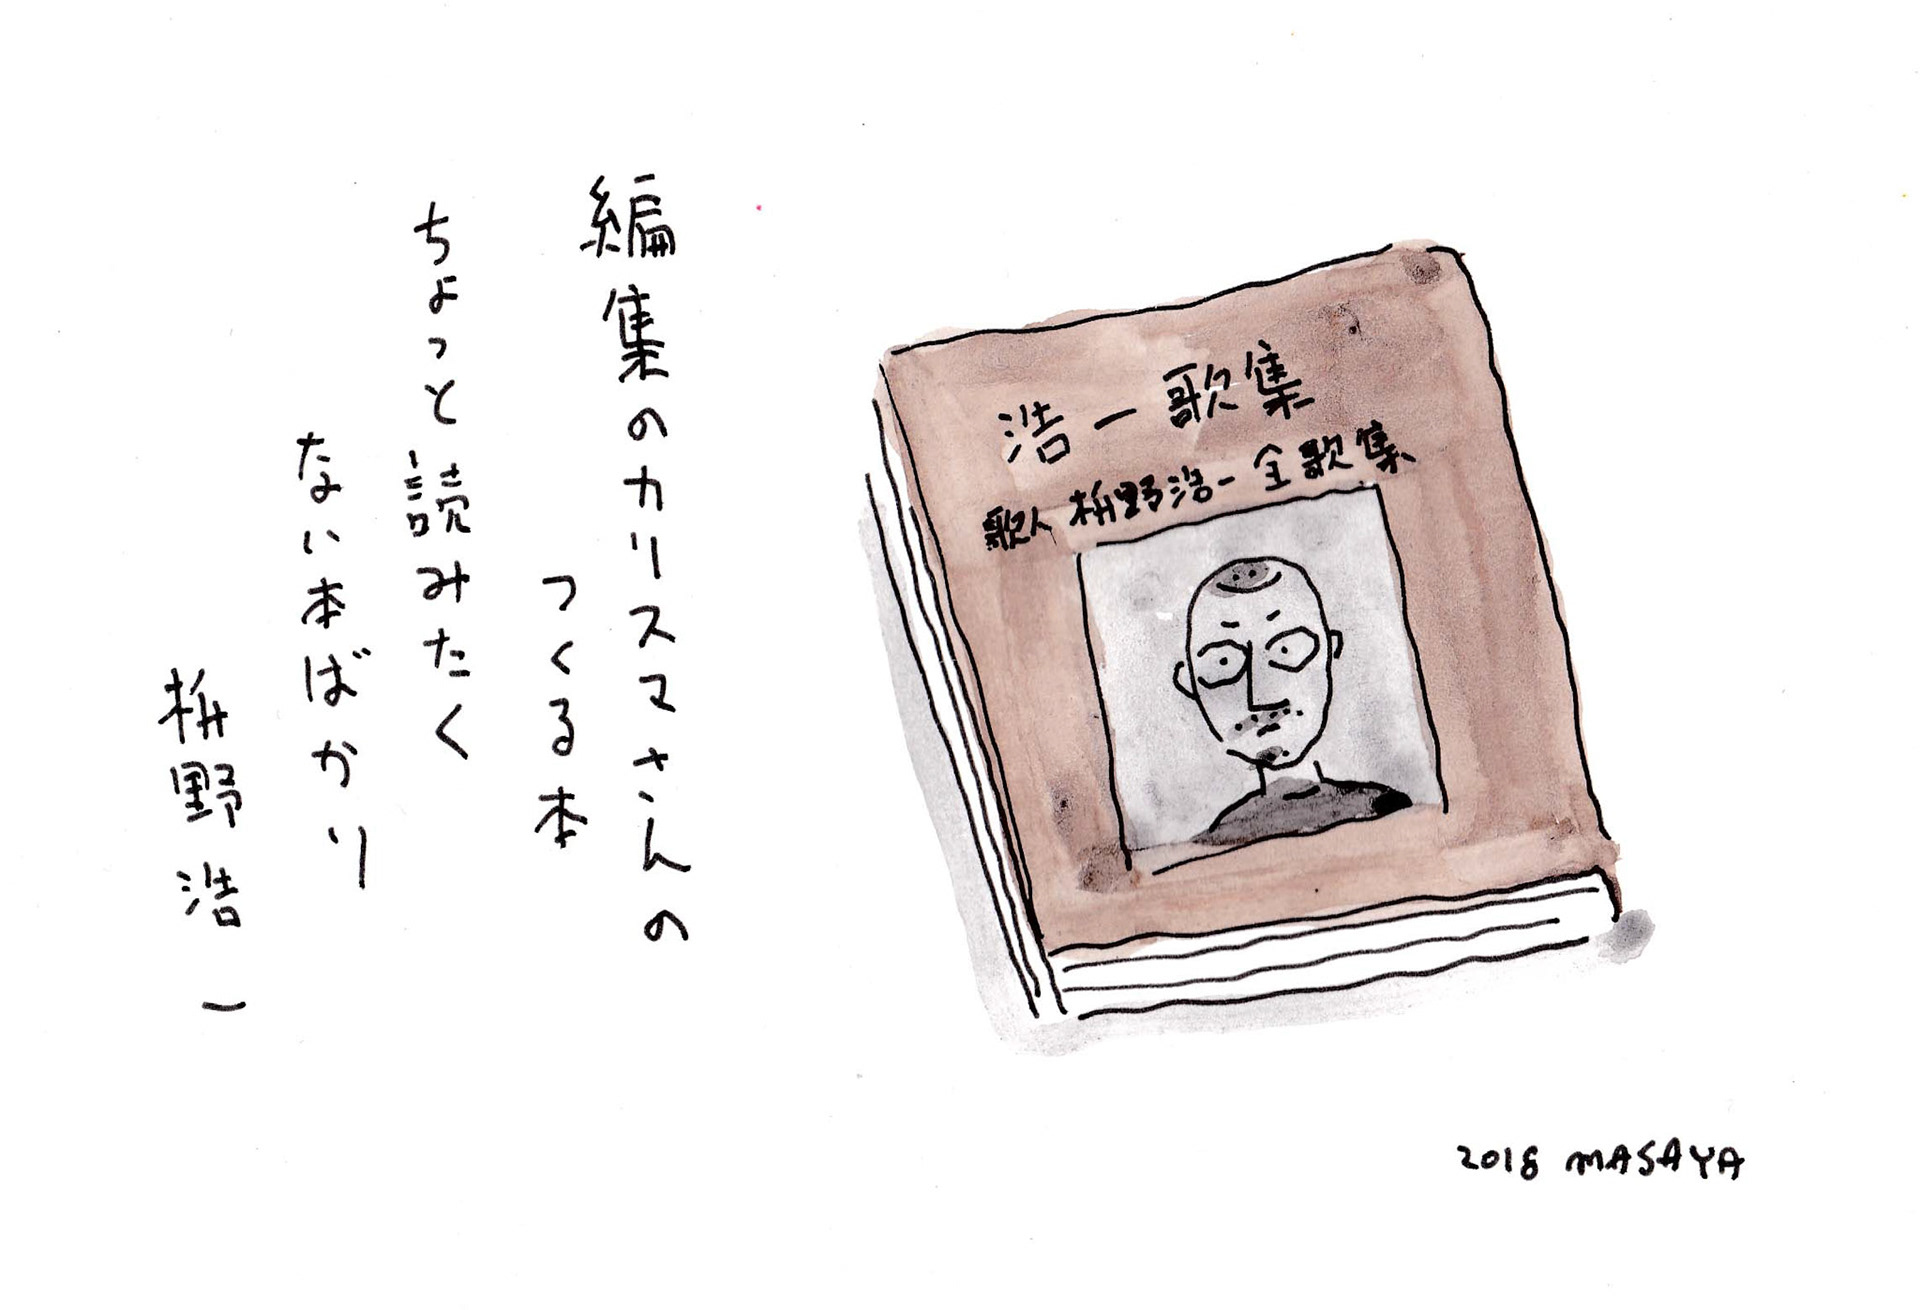 編集のカリスマさんの
つくる本
ちょっと読みたく
ない本ばかり
枡野浩一
浩一歌集
歌人 枡野浩一全歌集
2018 MASAYA